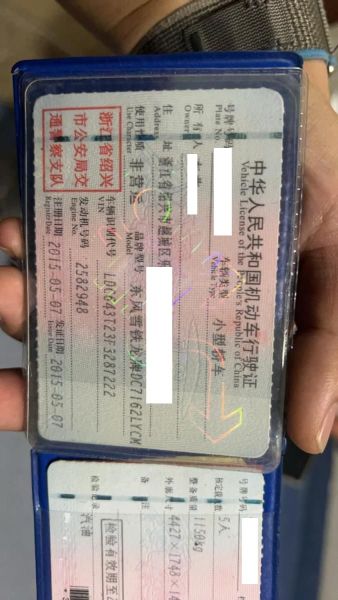 中华人民共和国机动车行驶证
Vehicle License of the People's Republic of China
号牌号码
Plate No.
车辆类型
Vehicle Type
小型轿车
所有人
Owner
住址
Address
浙江省绍兴市越城区
使用性质
Use Character
非营运
品牌型号
Model
东风雪铁龙牌DC7162LYCM
浙江省绍兴
市公安局交
通警察支队
车辆识别代号
VIN
LDC643T23F3287222
发动机号码
Engine No.
2582948
注册日期
Register Date
2015-05-07
发证日期
Issue Date
2015-05-07
号牌号码
核定载人数
5人
整备质量
1150kg
外廓尺寸
4427×1748×14
备注
检验有效期至
检验记录
汽油